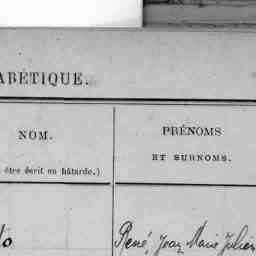 ABÉTIQUE.
NOM. PRÉNOMS
ET SURNOMS.
être écrit en bâtarde.)
René, Jean Marie Julien